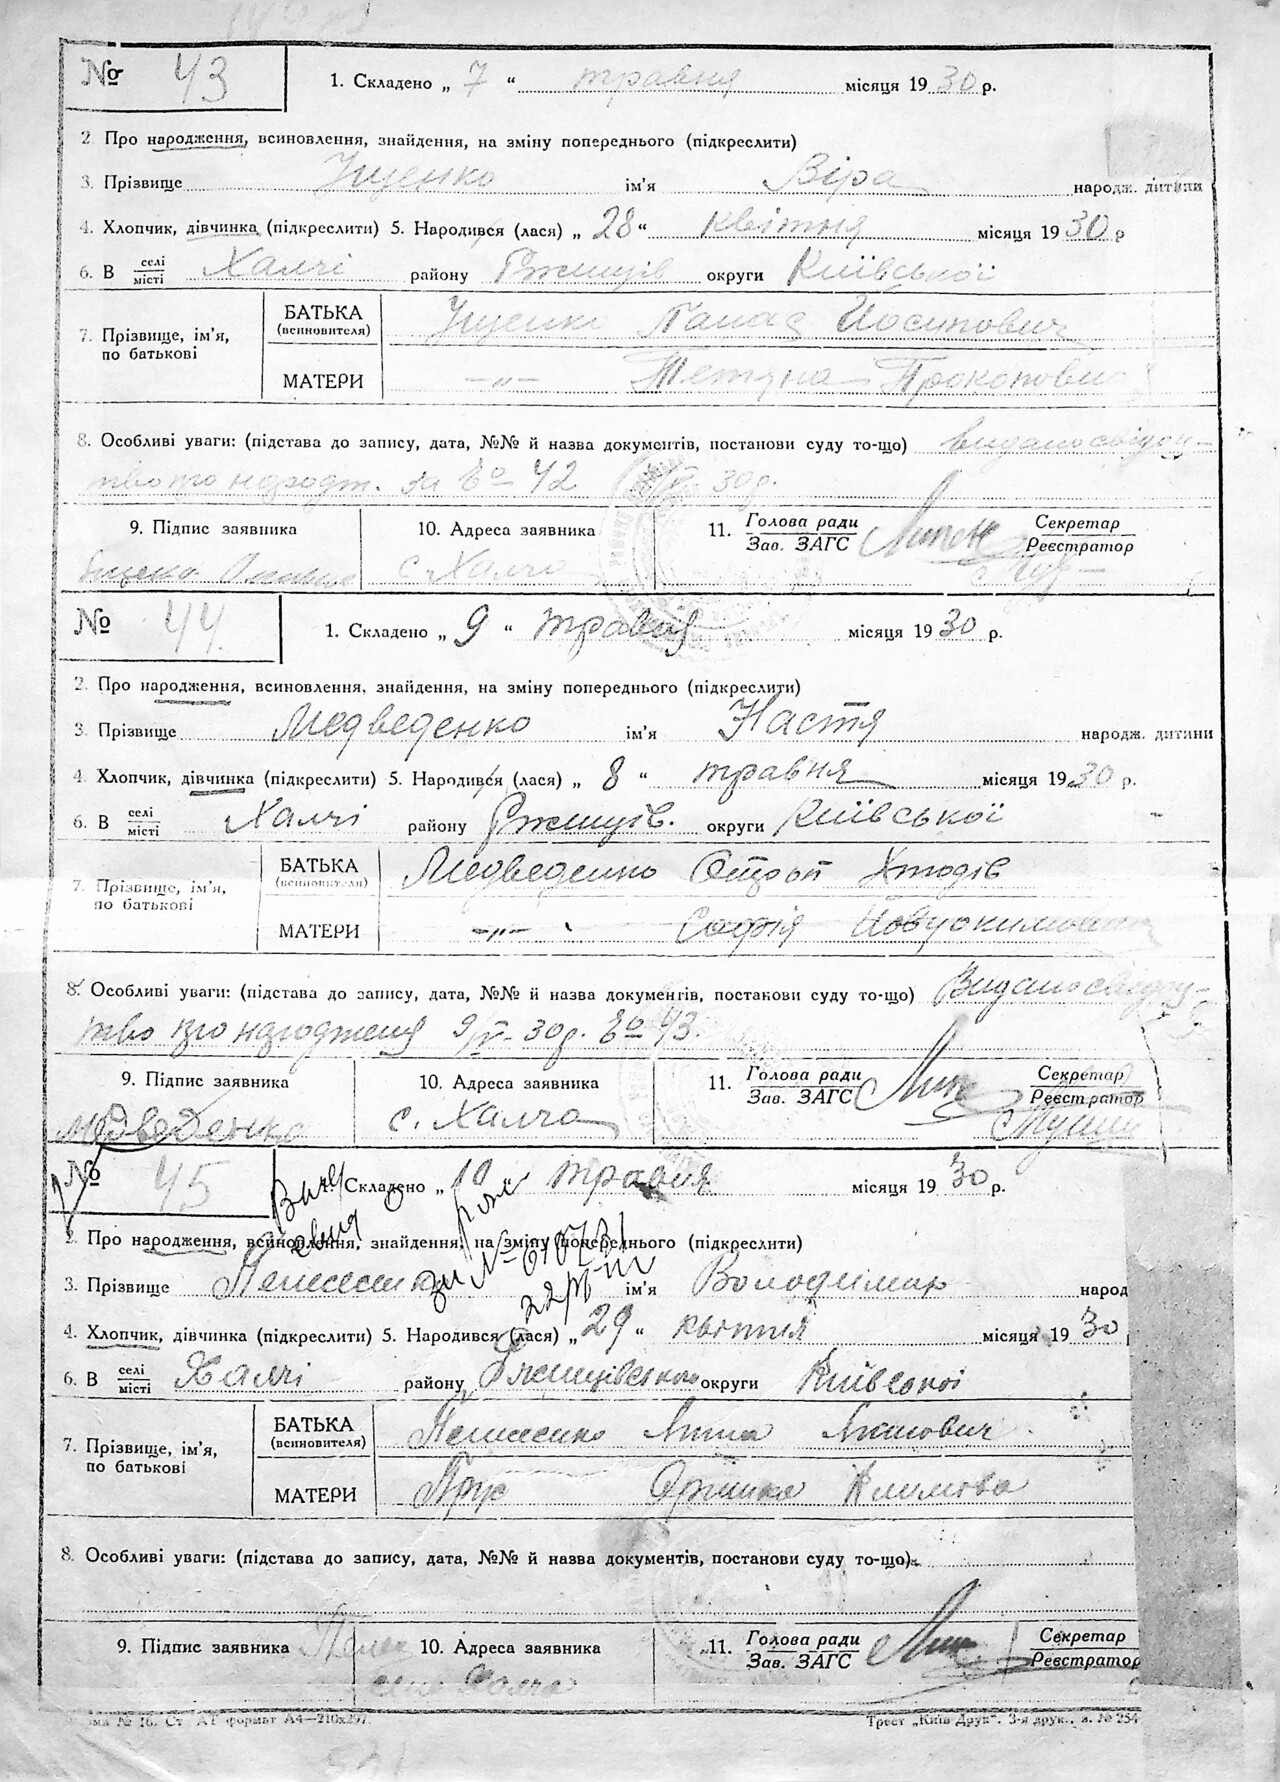 № 43 1. Складено „ 7 “ травня місяця 19 30 р.
2. Про народження, всиновлення, знайдення, на зміну попереднього (підкреслити)
3. Прізвище Іщенко ім'я Віра народж. дитини
4. Хлопчик, дівчинка (підкреслити) 5. Народився (лася) „ 28 “ квітня місяця 19 30 р
6. В селі місті Халчі району Ржищів округи Київської
7. Прізвище, ім'я, по батькові
БАТЬКА (всиновителя) Іщенко Панас Йосипович
МАТЕРИ —„— Тетяна Прокоповна
8. Особливі уваги: (підстава до запису, дата, №№ й назва документів, постанови суду то-що) видано свідоц-
тво про народж. за № 42 30р.
9. Підпис заявника 10. Адреса заявника 11. Голова ради Зав. ЗАГС Секретар Реєстратор
с. Халча
№ 44. 1. Складено „ 9 “ травня місяця 19 30 р.
2. Про народження, всиновлення, знайдення, на зміну попереднього (підкреслити)
3. Прізвище Медведенко ім'я Настя народж. дитини
4. Хлопчик, дівчинка (підкреслити) 5. Народився (лася) „ 8 “ травня місяця 19 30 р.
6. В селі місті Халчі району Ржищів. округи Київської
7. Прізвище, ім'я, по батькові
БАТЬКА (всиновителя) Медведенко
МАТЕРИ —„— Софія
8. Особливі уваги: (підстава до запису, дата, №№ й назва документів, постанови суду то-що) Видано свідоц-
тво про народженя 9/V-30р. № 43.
9. Підпис заявника 10. Адреса заявника 11. Голова ради Зав. ЗАГС Секретар Реєстратор
Медведенко с. Халча
№ 45 1. Складено „ 10 “ травня місяця 19 30 р.
2. Про народження, всиновлення, знайдення, на зміну попереднього (підкреслити)
3. Прізвище ім'я Володимир народ
4. Хлопчик, дівчинка (підкреслити) 5. Народився (лася) „ 29 “ квітня місяця 19 30
6. В селі місті Халчі району Ржищівського округи Київської
7. Прізвище, ім'я, по батькові
БАТЬКА (всиновителя)
МАТЕРИ Оришка Климова
8. Особливі уваги: (підстава до запису, дата, №№ й назва документів, постанови суду то-що)
9. Підпис заявника 10. Адреса заявника 11. Голова ради Зав. ЗАГС Секретар Реєстратор
Халча
№ 16. Ст. А1 формат А4—210х297. Трест „Київ-Друк“. 3-я друк., з. № 254